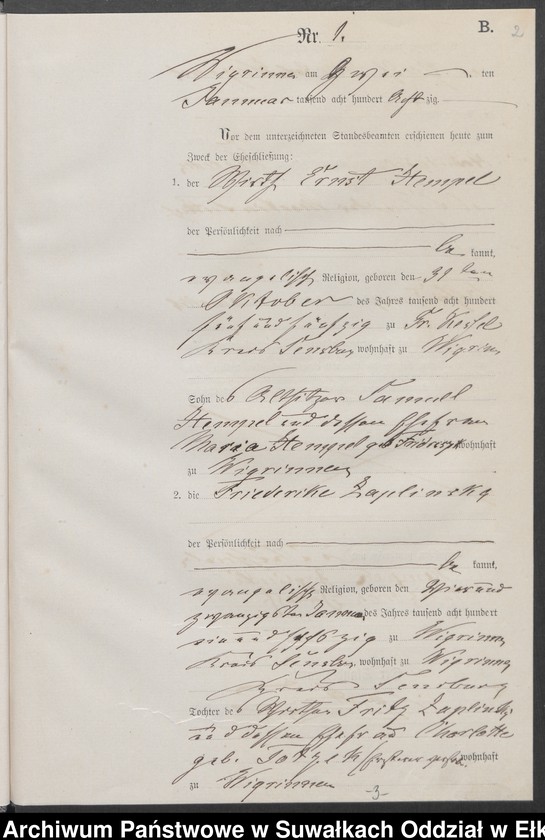 B.
2
Nr. 1.
Wigrinnen am Zwei ten
Januar tausend acht hundert Achtzig.
Vor dem unterzeichneten Standesbeamten erschienen heute zum
Zweck der Eheschließung:
1. der Wirth Ernst Hempel
der Persönlichkeit nach
be kannt,
evangelischer Religion, geboren den 31 ten
Oktober des Jahres tausend acht hundert
fünf und fünfzig zu Kessel
Kreis Sensburg, wohnhaft zu Wigrinnen
Sohn des Altsitzer Samuel
Hempel und dessen Ehefrau
Maria Hempel geb. wohnhaft
zu Wigrinnen
2. die Friederike Zaplinsky
der Persönlichkeit nach
be kannt,
evangelischer Religion, geboren den Vierund
zwanzigsten Januar des Jahres tausend acht hundert
ein und sechszig zu Wigrinnen
Kreis Sensburg, wohnhaft zu Wigrinnen
Kreis Sensburg
Tochter des Wirths Fritz Zaplinsky
und dessen Ehefrau Charlotte
geb. wohnhaft
zu Wigrinnen
-3-
Archiwum Państwowe w Suwałkach Oddział w Ełk